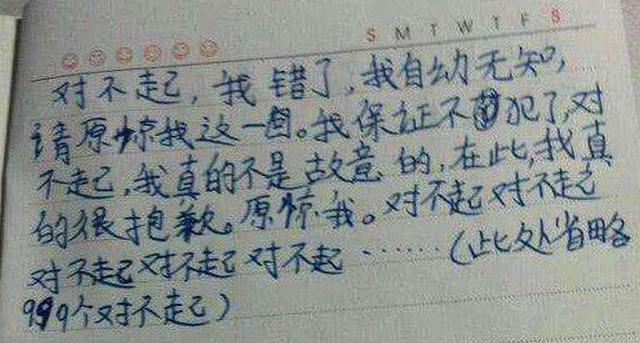 S M T W T F S
对不起,我错了,我自幼无知,
请原惊我这一回。我保证不再犯了,对
不走己,我真的不是故意的,在此,我真
的很抱歉。原惊我。对不起对不走己
对不走己对不走己对不起……(此处省略
999个对不走己)